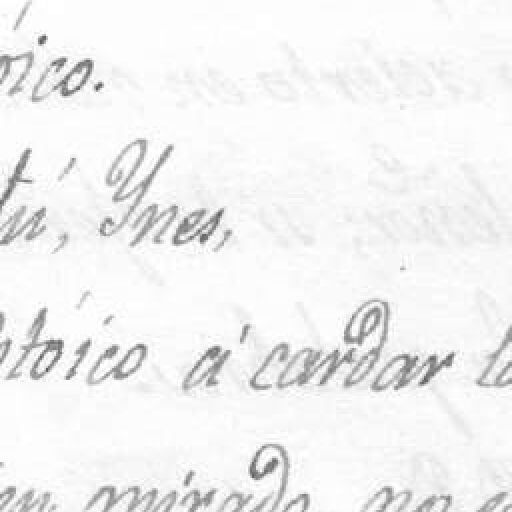 óico.
tú, Ynes,
tóico á cardar
mirado, no